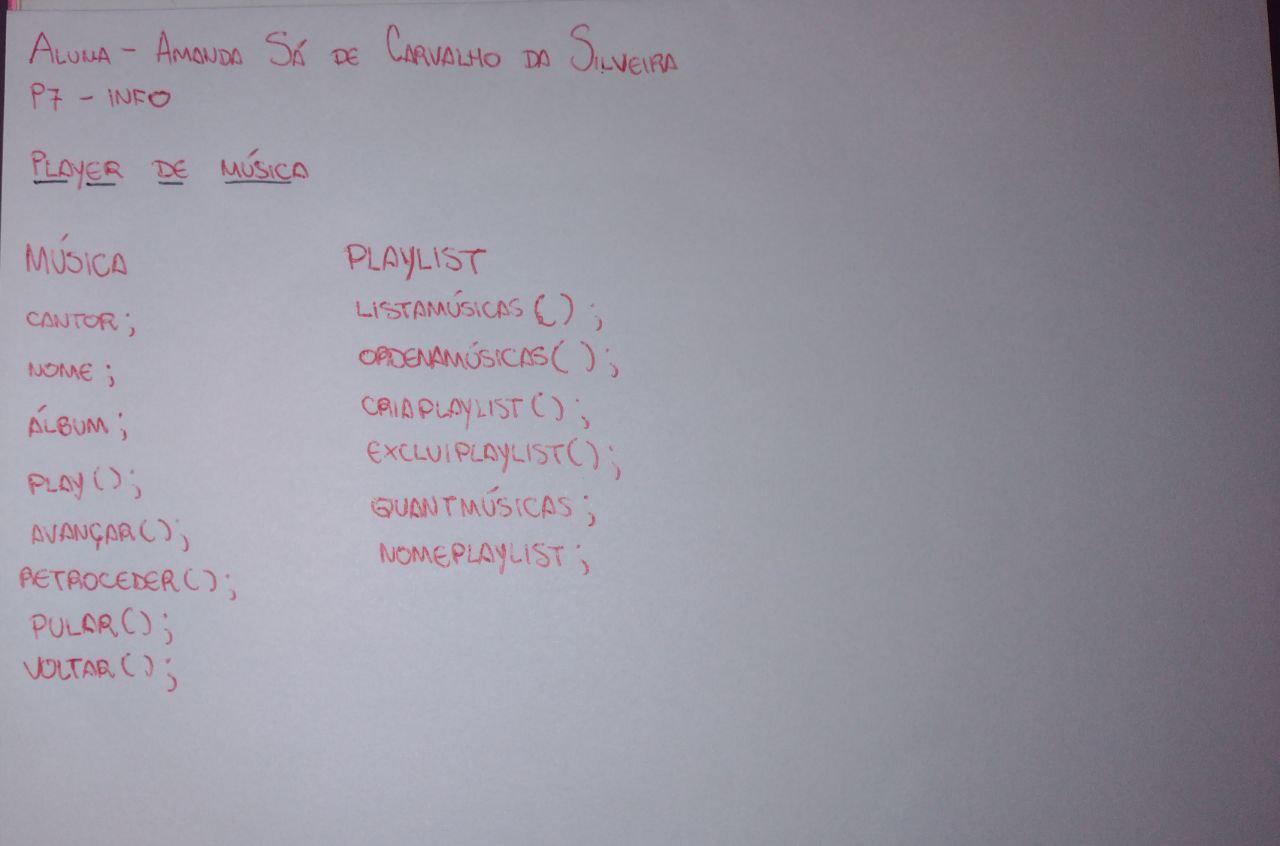 ALUNA - AMANDA SÁ DE CARVALHO DA SILVEIRA
P7 - INFO
PLAYER DE MÚSICA
MÚSICA
CANTOR;
NOME;
ÁLBUM;
PLAY();
AVANÇAR();
RETROCEDER();
PULAR();
VOLTAR();
PLAYLIST
LISTAMÚSICAS();
ORDENAMÚSICAS();
CRIAPLAYLIST();
EXCLUIPLAYLIST();
QUANTMÚSICAS;
NOMEPLAYLIST;